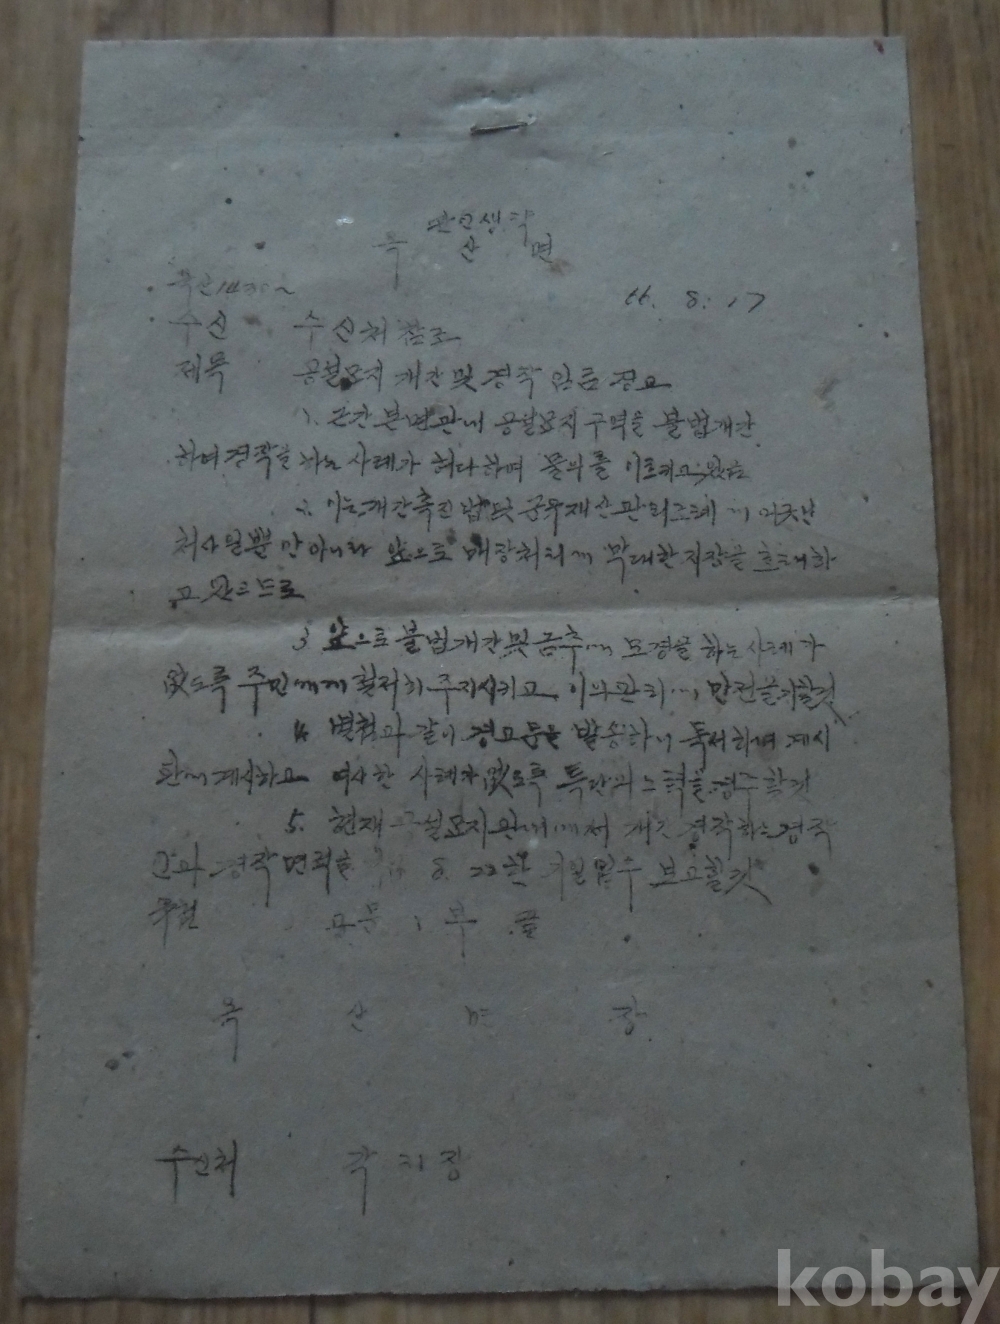 옥 산 면
66. 8. 17
수신 수신처 참조
제목 공설묘지 개간 및 경작 경고
1. 근간 본면관내 공설묘지 구역을 불법개간
하여 경작을 하는 사례가 허다하여 물의를 이르키고
2. 이는 개간촉진법 및 공유재산관리조례에 어긋난
처사일뿐만 아니라 앞으로 매장처리에 막대한 지장을 초래하
고
3. 앞으로 불법개간 및 금추에 모경을 하는 사례가
없도록 주민에게 철저히 주지시키고 이의 관리에 만전을 기할것
4. 별첨과 같이 경고문을 발송하니 계시
판에 계시하고 여사한 사례가 없도록 특단의 노력을 경주할것
5. 현재 공설묘지 관내에서 개간 경작하는 경작
자와 경작면적을 8. 22한 보고할것
경고문 1부 끝
옥 산 면 장
수신처 각 이장
kobay